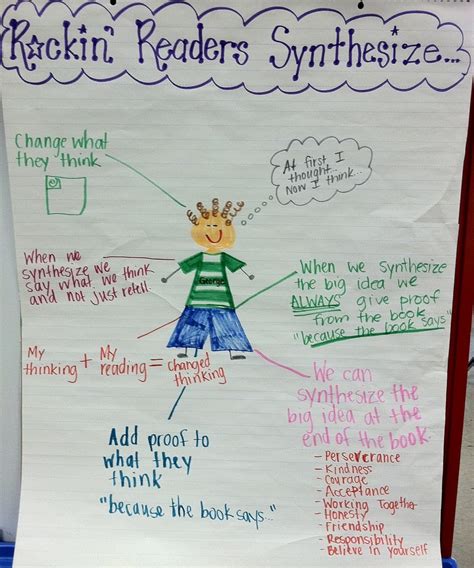 Rockin' Readers Synthesize...
Change what
they think
At first I
thought...
Now I think...
When we
synthesize we
say what we think
and not just retell.
George
When we synthesize
the big idea we
ALWAYS give proof
from the book
"because the book says"
My
thinking + My
reading = changed
thinking
We can
synthesize the
big idea at the
end of the book.
- Perseverance
- Kindness
- Courage
- Acceptance
- Working Together
- Honesty
- Friendship
- Responsibility
- Believe in yourself
Add proof to
what they
think
"because the book says..."